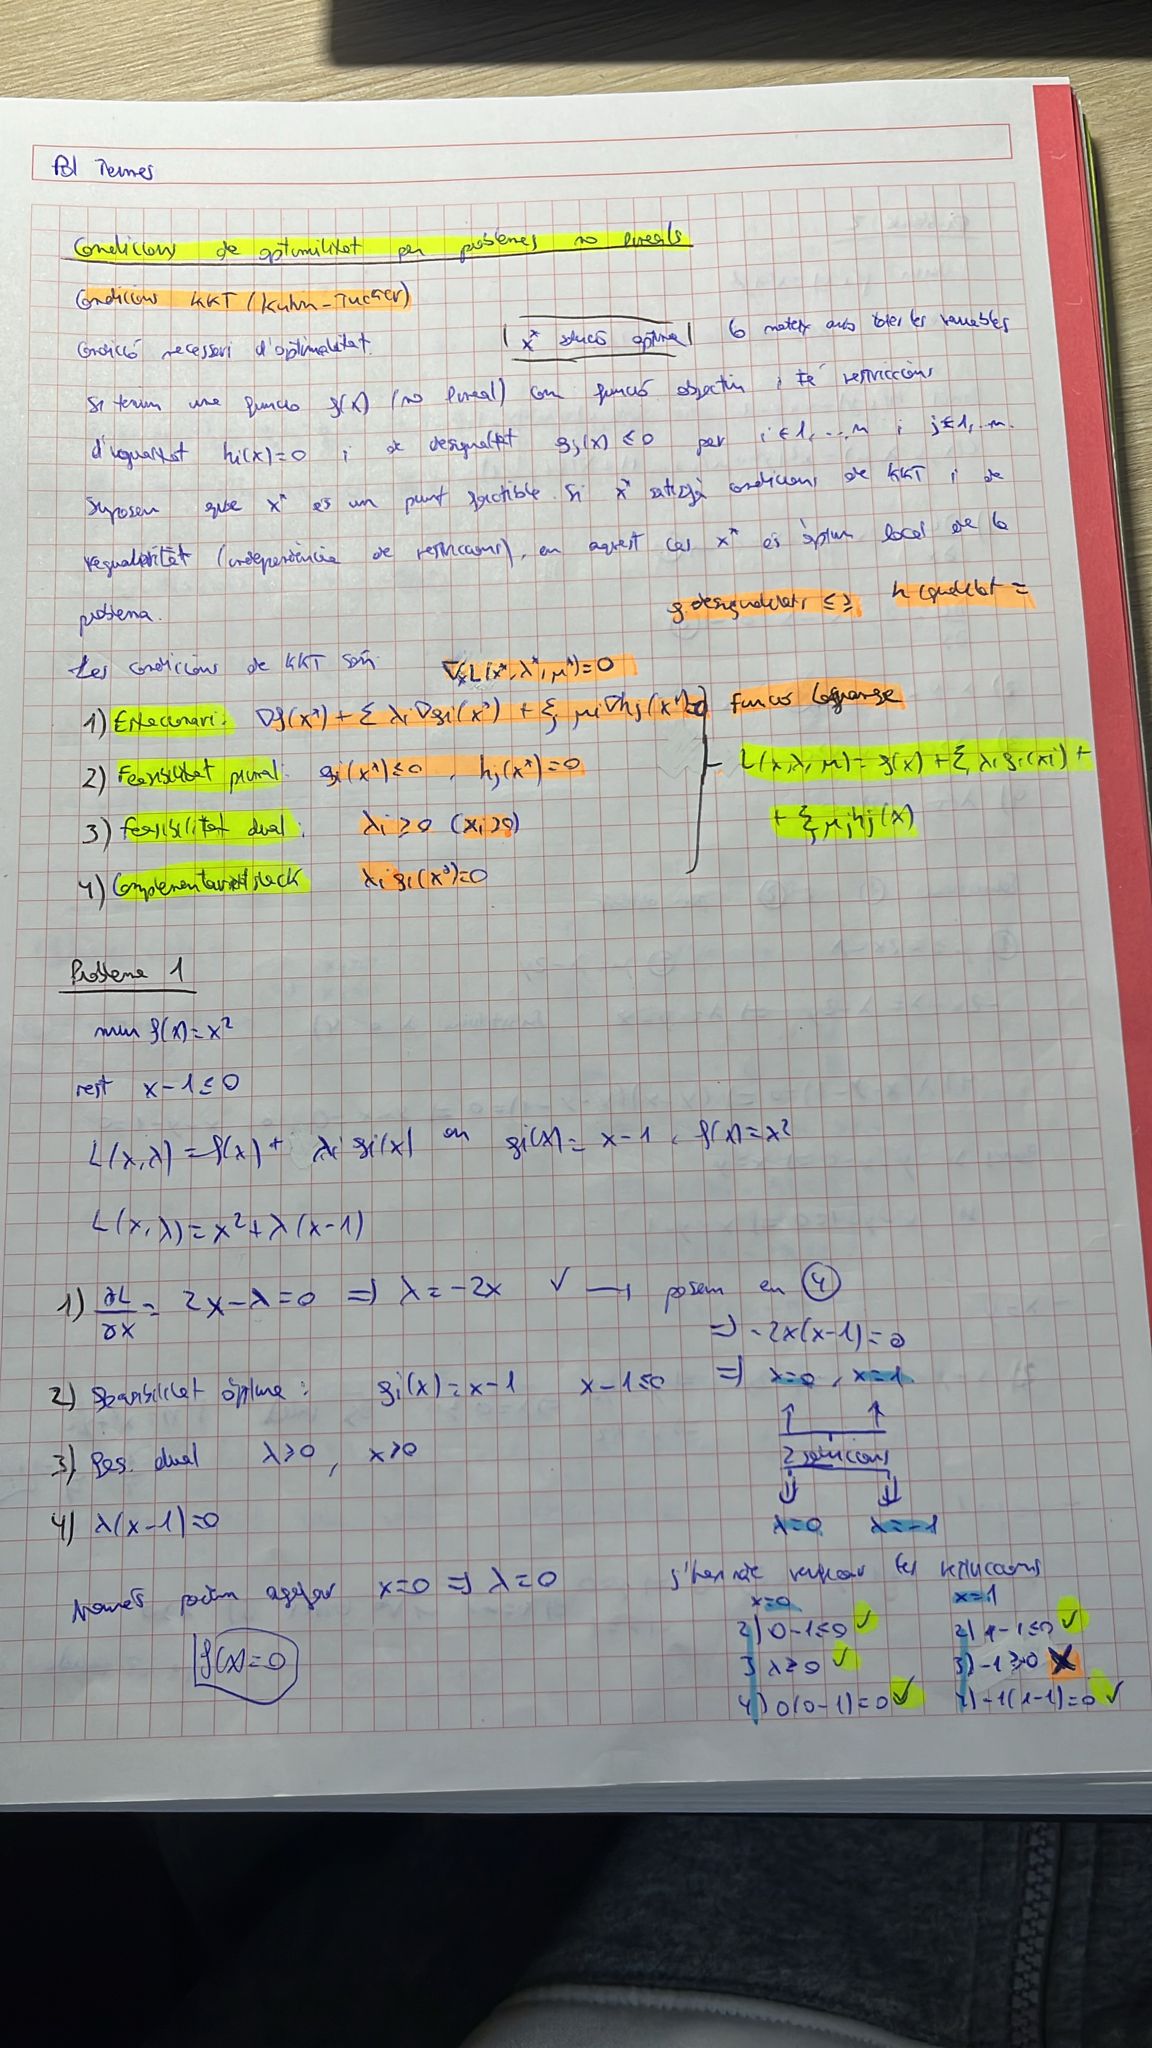 Pol Termes
Condicions de optimilitat per problemes no lineals
Condicions KKT (Kuhn-Tucker)
Condició necessari d'optimalitat. | x* solució òptima | la mateix amb totes les variables
Si tenim una funció f(x) (no lineal) com funció objectiu i té restriccions
d'igualtat hi(x)=0 i de desigualtat gj(x) ≤0 per i∈1,...m i j∈1,...n.
Suposem que x* és un punt factible. Si x* satisfà condicions de KKT i de
regularitat (independència de restriccions), en aquest cas x* és òptim local de la
problema.
g desigualtats ≤≥ h igualtat =
Les condicions de KKT són: ∇xL(x*,λ*,μ*)=0
1) Estacionari: ∇f(x*) + Σ λi∇gi(x*) + Σ μi∇hj(x*)=0 Funció Lagrange
2) Feasibilitat primal: gi(x*)≤0 , hj(x*)=0 L(x,λ,μ)=f(x)+Σ λi gi(xi)+
3) Feasibilitat dual: λi≥0 (xi≥0) + Σ μjhj(x)
4) Complementarietat slack λigi(x*)=0
Problema 1
min f(x)=x²
rest x-1≤0
L(x,λ)=f(x)+ λi gi(x) on gi(x)= x-1, f(x)=x²
L(x,λ)=x²+λ(x-1)
1) ∂L/∂x = 2x-λ=0 ⇒ λ=-2x ✓ → posem en ④
⇒ -2x(x-1)=0
2) Feasibilitat òptima: gi(x)=x-1 x-1≤0 ⇒ x=0, x=1
3) Fes. dual λ≥0, x≥0
2 solucions
4) λ(x-1)=0
λ=0 λ=-1
Només podem agafar x=0 ⇒ λ=0
f(x)=0
S'han de verificar les restriccions
x=0 x=1
2) 0-1≤0 ✓ 2) 1-1≤0 ✓
3 λ≥0 ✓ 3) -1≥0 X
4) 0(0-1)=0 ✓ 4) -1(1-1)=0 ✓